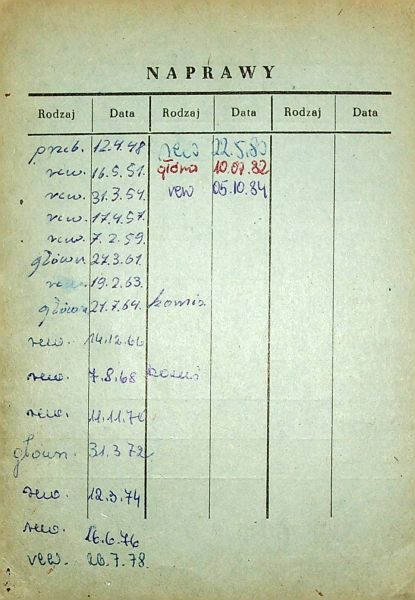 NAPRAWY
Rodzaj Data Rodzaj Data Rodzaj Data
przeb. 12.4.48 rew 22.5.80
rew. 16.5.51. główna 10.07.82
rew. 31.3.54. rew 05.10.84
rew. 17.4.57.
rew. 7.2.59.
główn 27.3.61.
19.2.63.
główn 27.7.64. komis.
rew. 14.12.66
rew. 7.8.68
rew. 11.11.70
główn. 31.3.72
rew. 12.3.74
rew. 16.6.76
rew. 26.7.78.